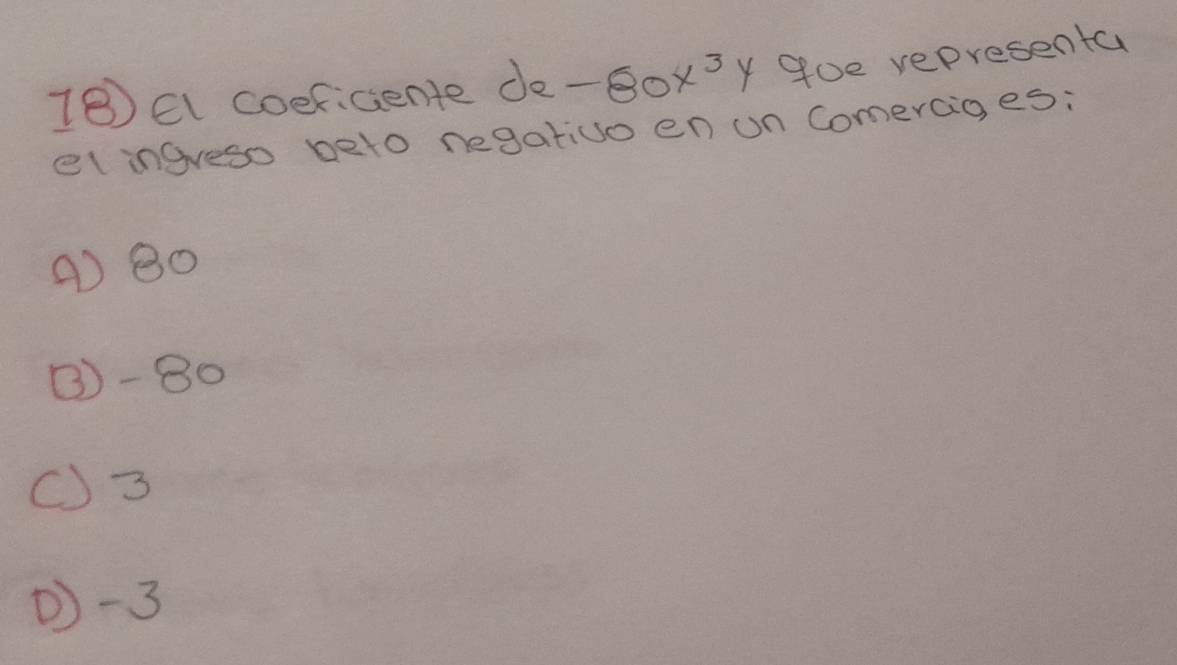 18) El coeficiente de -80x³y que representa
el ingreso neto negativo en un comercio es:
A) 80
B) -80
C) 3
D) -3